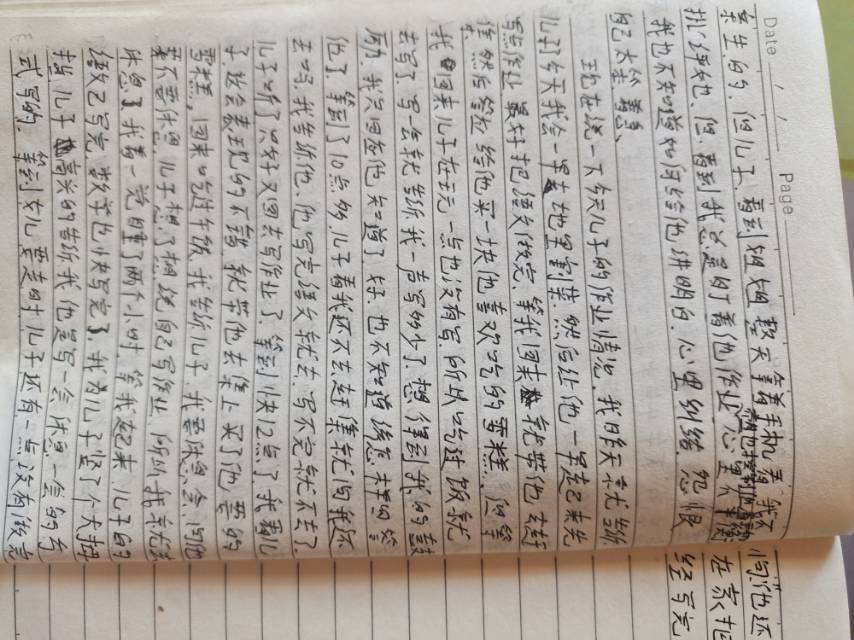 Date / / Page
亲生的，但儿子，看到姐姐整天拿着手机看，我不
批评她，但，看到我总是盯着他作业，心里不平衡
我也不知道如何给他讲明白，心里纠结，怨恨
自己太笨，着急、
现在说一下今天儿子的作业情况，我昨天就告诉
儿子今天我会一早去地里割菜，然后让他一早起来先
写点作业，最好把语文做完，等我回来就带他去赶
集，然后答应给他买一块他喜欢吃的雪糕，但等
我回来儿子在玩，一点也没有写，所以吃过饭就
去写了，写一会就告诉我一声写多少了，想得到我的鼓
励，我只回应他知道了，好，也不知道该怎样回答
他了，等到了10点多，儿子看我还不去赶集就问我还
去吗，我告诉他，他写完语文就去，写不完就不去了，
儿子听了只好又回去写作业了，等到快12点了，我看儿
子，故意表现的不错，就带他去集上买了他要的
雪糕，回来吃过午饭，我告诉儿子，我要休息会，问他
要不要休息，儿子想了想说自己写作业，所以我就去
休息了，我看一觉睡了两个小时，等我起来，儿子的
语文已写完，数学也快写完了，我为儿子竖了个大拇
指，儿子高兴的告诉我他是写一会休息一会的方
式写的，等到女儿要走时，儿子还有一点没有做完
问他还
在家把
经写完